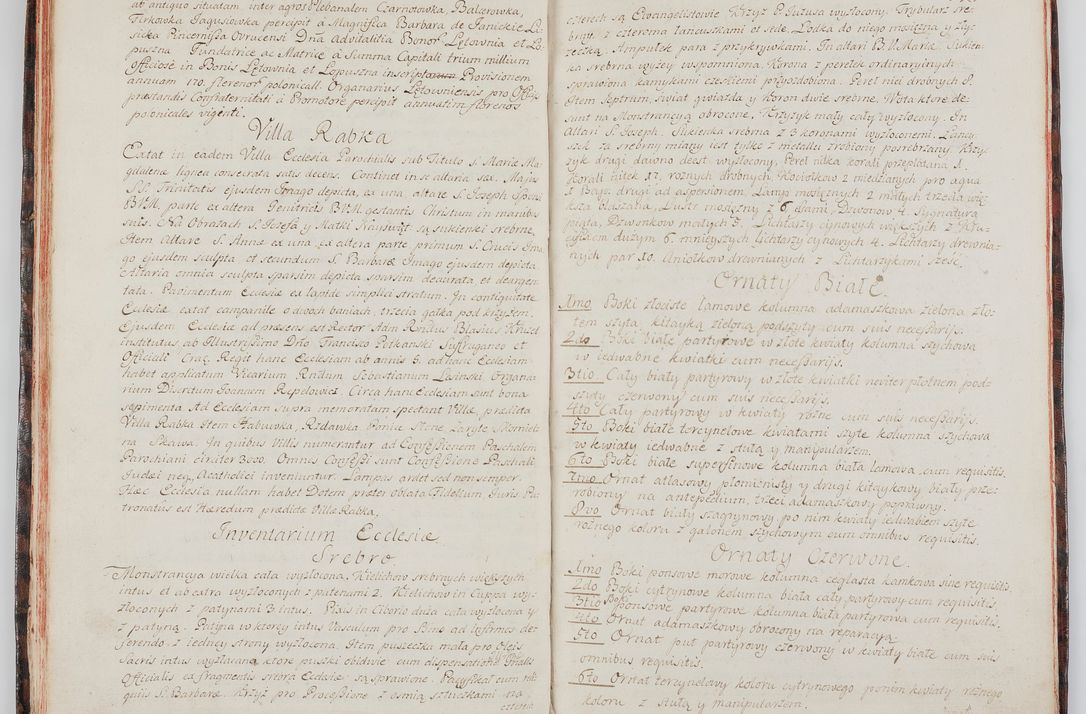 ab antiquo situatam, inter agros Plebanalem Czarnotowka, Balcerowka,
percipit à Magnifica Barbara de Janickie
Pincernissa Ovrucensi Dna Advitalitia Bonor Lętownia et Lo-
puszna Fundatrice ac Matrice à Summa Capitali trium millium
officiosè in Bonis Lętownia et Lopuszna inscriptarum Provisionem
annuam 170. florenor polonicall. Organarius Lętowniensis pro Offijs
præstandis Confraternitati à Promotore percipit annuatim florenos
polonicales viginti.
Villa Rabka
Extat in eadem Villa Ecclesia Parochialis sub Titulo S. Mariæ Ma-
gdalenæ lignea consecrata satis decens. Continet in se altaria sex. Majus
SS. Trinitatis ejusdem Imago depicta, ex una altare S. Joseph Sponsi
BVM. parte ex altera Genitricis BVM gestantis Christum in manibus
suis. Na Obrazach S. Jozefa y Matki Nayswięt są sukienki srebrne.
Item Altare S. Annæ ex una ex altera parte primum S. Crucis Ima-
go ejusdem sculpta et secundum S. Barbaræ Imago ejusdem depicta.
Altaria omnia sculpta sparsim depicta smorsim deaurata et deargen-
tata. Pavimentum Ecclesiæ ex lapide simplici stratum. In contiguitate
Ecclesiæ extat campanile o dwoch baniach, trzecia gałka pod krzyżem.
Ejusdem Ecclesiæ ad præsens est Rector Adm Rndus Blasius Kruzel
institutus ab Illustrissimo Dno Francisco Potkanski Suffraganeo et
Officiali Crac. Regit hanc Ecclesiam ab annis 5. ad hanc Ecclesiam
habet appositum Vicarium Rndum Sebastianum Lasinski. Organa-
rium Discretum Joannem Rępelowicz. Circa hanc Ecclesiam sunt bona
sepimenta. Ad Ecclesiam supra memoratam spectant Villæ, prædicta
Villa Rabka Item Chabuwka, Rzdawka Ponice Słone Zaryte
na Skawa. In quibus Villis numerantur ad Confessionem Paschalem
Parochiani circiter 3000. Omnes Confessi sunt Confessione Paschali.
Judei neq Acatholici inveniuntur. Lampas ardet sed non semper.
Hæc Ecclesia nullam habet Dotem præter oblata Fidelium Juris Pa-
tronatus est Hæredum prædictæ Villæ Rabka.
Inventarium Ecclesiæ
Srebro
Monstrancya wielka cała wyzłocona. Kielichow srebrnych większych
intus et ab extra wyzłoconych z patenami 2. Kielichow in Cuppa wy-
złoconych z patynami 3 intus. Pixis in Ciborio duża cała wyzłocona y
z patyną. Patyna w ktorey intus Vasculum pro Binis ad infirmos de-
ferendo z iedney strony wyzłocona. Item puszeczka mała pro Oleis
Sacris intus wyzłacana, ktore puszki obidwie cum dispensatione Illris
Officialis ex fragmentis srebra Ecclesiæ są sprawione. Pacyfikał cum reli-
quiis S. Barbaræ. Krzyż pro Processione z osmią sztuczkami na
czterech
czterech są Ewangelistowie Krzyż P. Jezusa wyzłocony. Trybularz sre-
brny z czterema łancuszkami et sede. Łodka do niego mosiężna y ły-
żeczką. Ampułek para z przykrywkami. In altari B.V. Mariæ. Sukien-
ka srebrna wyżey wspomniona. Korona z perełek ordinaryinych
sprawiona kamykami czeskiemi przyozdobiona. Pereł nici drobnych 8.
Item Septrum, świat gwiazda y koron dwie srebrne. Wota ktore de-
sunt na Monstrancyą obrocone. Krzyżyk mały cały wyzłocony. In
Altari S. Joseph. Sukienka srebrna z 3 koronami wyzłoconemi. Łancu-
szek za srebrny miany iest tylko z metallu zrobiony posrebrzany Krzy-
żyk drugi dawno deest wyzłocony. Pereł nitka korali przeplatana 1.
Korali nitek 17. roznych drobnych. Kociołkow 2 miedzianych pro aqua
1 Bapt. drugi ad aspersionem. Lamp mosiężnych 2 małych trzecia więk-
sza blaszana. Lustr mosiężny z 6 Dzwonow 4. Sygnatura
piąta, Dzwonkow małych 5. Lichtarzy cynowych większych z Kru-
cyfixem dużym 6. mnieyszych lichtarzy cynowych 4. Lichtarzy drewnia-
nych par 10. Aniołkow drewnianych z Lichtarzykami Sześć
Ornaty Białe.
1mo Boki złociste lamowe kolumna adamaszkowa zielona zło-
tem szyta, kitayką zieloną podszyty cum suis necessarijs.
2do Boki białe partyrowy w złote kwiaty kolumna szychowa
w iedwabne kwiatki cum necessarijs.
3tio Cały biały partyrowy w złote kwiatki neviter płotnem pod-
szyty czerwony cum suis necessarijs.
4to Cały partyrowy w kwiaty rozne cum suis necessarijs.
5to Boki białe tercynelowe kwiatami szyte kolumna szychowa
w kwiaty iedwabne z stułą y manipularzem.
6to Boki białe superfinowe kolumna biała lamowa, cum requisitis.
7mo Ornat atłasowy płomienisty y drugi kitaykowy biały prze-
robiony na antepedium, trzeci adamaszkowy poprawny.
8vo Ornat biały szagrynowy, po nim kwiaty iedwabiem szyte
rożnego koloru z galonem szychowym cum omnibus requisitis.
Ornaty Czerwone.
1mo Boki ponsowe morowe kolumna ceglasta kamkowa sine requisitis.
2do Boki cytrynowe kolumna biała cały partyrowy cum requisitis.
3tio Boki ponsowe partyrowe kolumna biała partyrowa cum requisitis.
4to Ornat adamaszkowy obrocony na reparacyą
5to Ornat puł partyrowy czerwony w kwiaty białe cum suis
omnibus requisitis.
6to Ornat terzynelowy koloru cytrynowego po nim kwiaty rożnego
koloru z stułą y manipularzem.